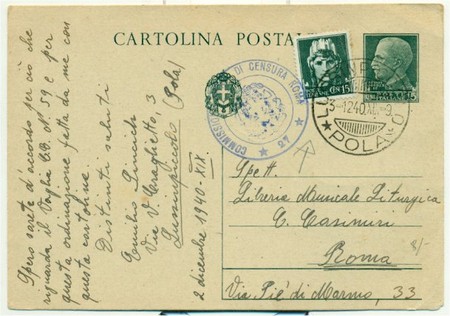 CARTOLINA POSTALE
CENT. 15
COMMISSIONE DI CENSURA ROMA
27
3-12 40 XIX-9
POLA
Spett.
Libreria Musicale Liturgica
C. Casimiri
Roma
Via Pie' di Marmo, 33
Spero sarete d'accordo per ciò che
riguarda il Vaglia N. 59 e per
questa ordinazione fatta da me con
questa cartolina.
Distinti saluti
Emilio
Via V. 3
Lussinpiccolo (Pola)
2 dicembre 1940-XIX.